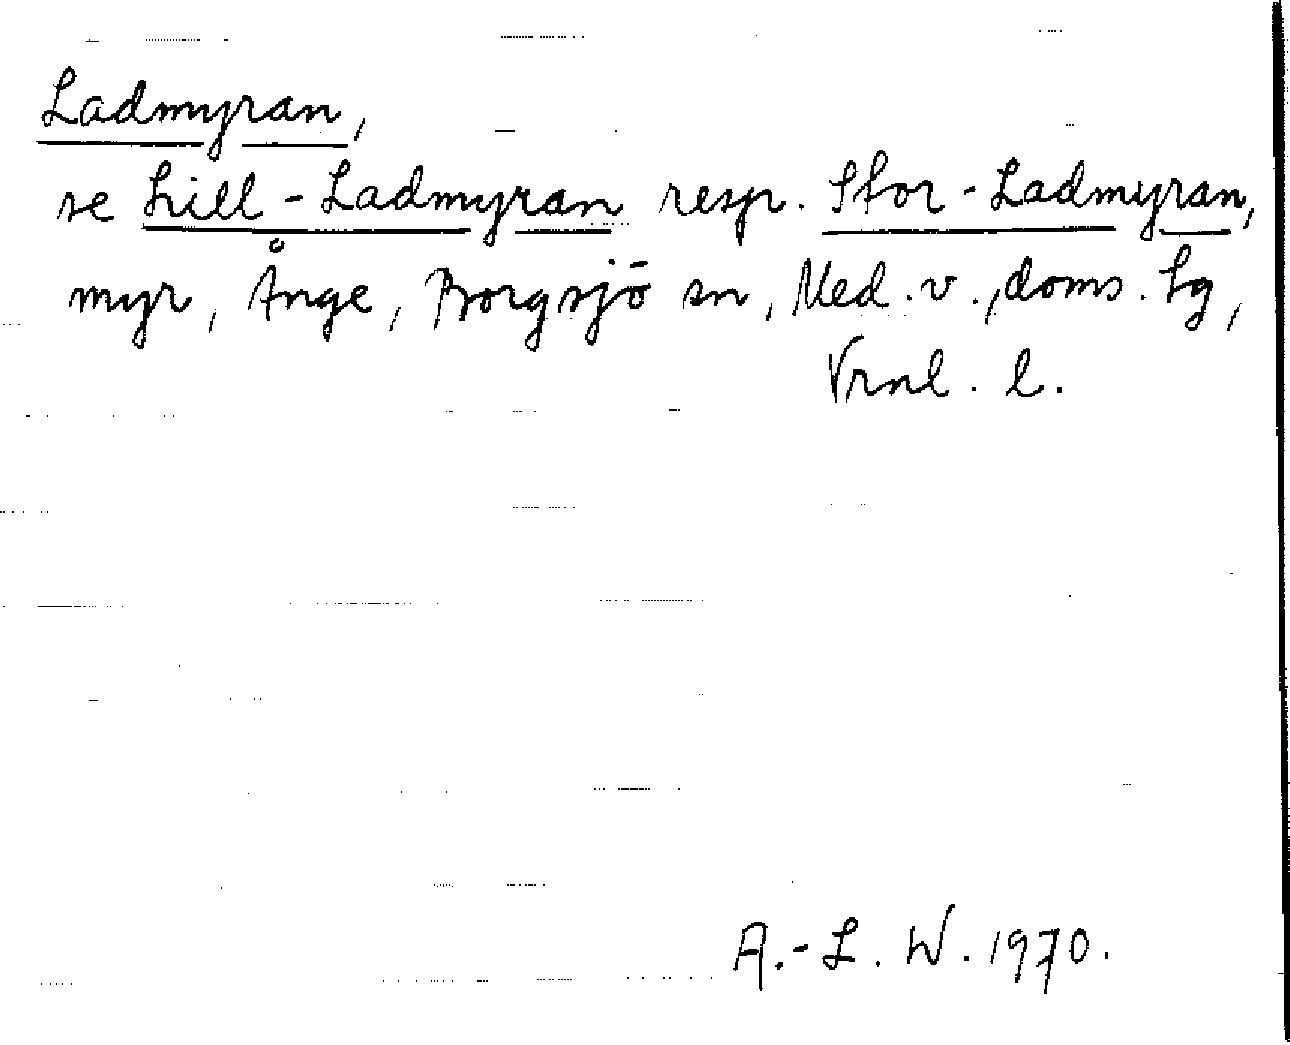 Ladmyran,
se Lill-Ladmyran resp. Stor-Ladmyran,
myr, Ånge, Borgsjö sn, Med. v., doms. lg,
Vrnl. l.
A.-L. W. 1970.